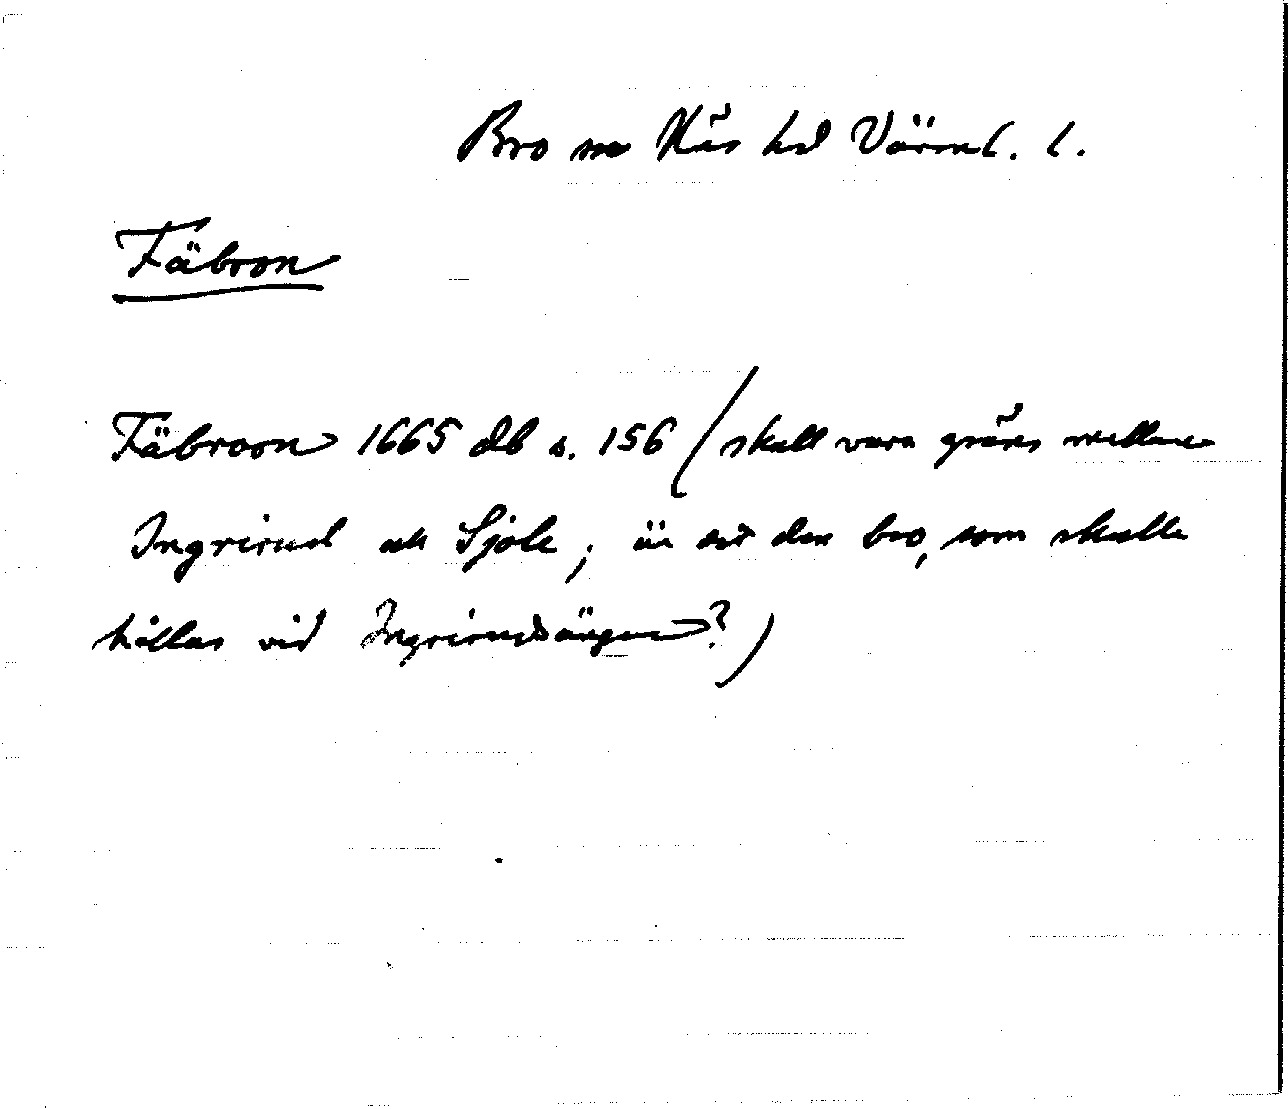 Bro sn Näs hd Värml. l.
Fäbron
Fäbroon 1665 db s. 156 (skall vara gräns mellan
Ingrirud och Sjöle; är det den bro, som skulle
hållas vid Ingrirudsängen?)